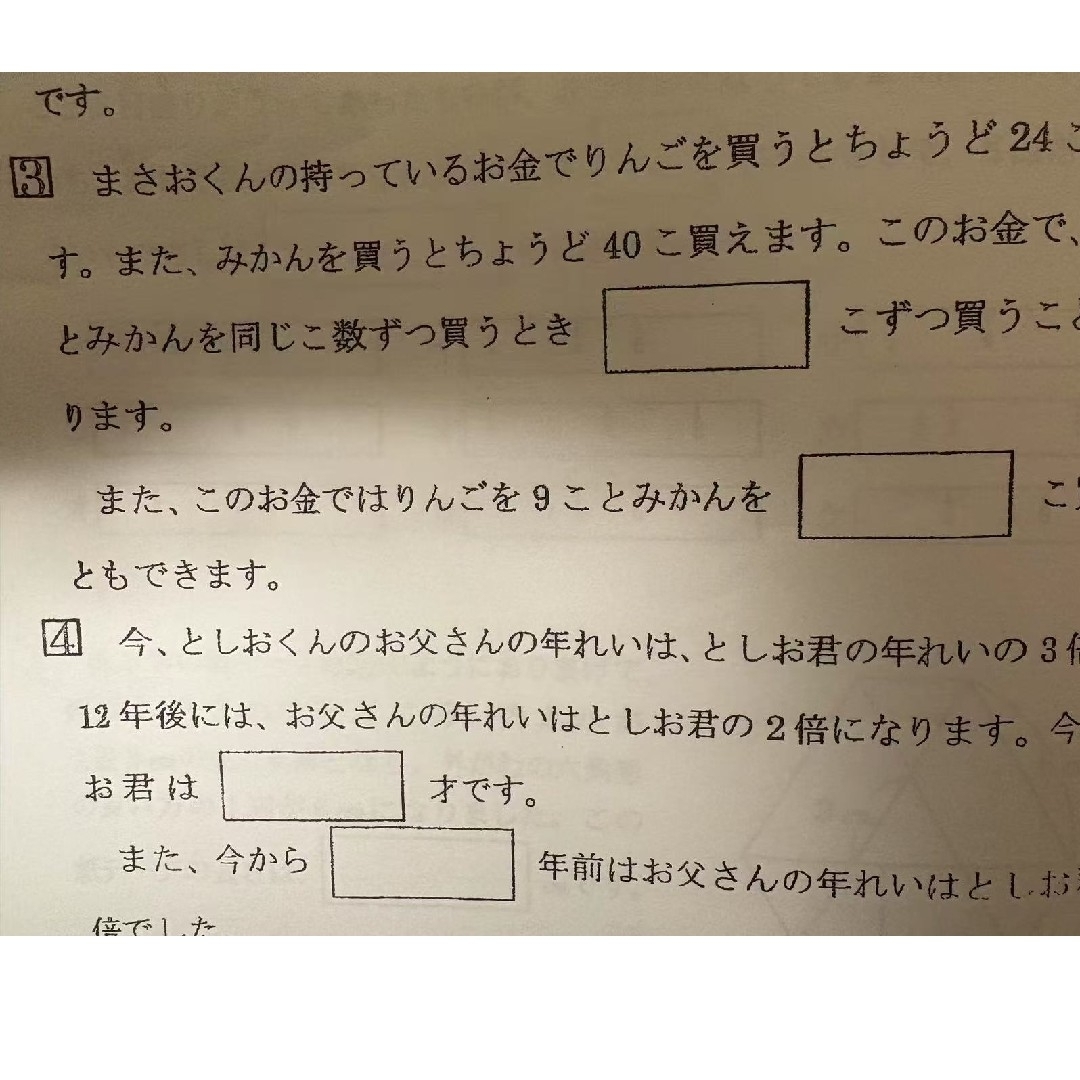 です。
3 まさおくんの持っているお金でりんごを買うとちょうど24こ
す。また、みかんを買うとちょうど40こ買えます。このお金で、
とみかんを同じこ数ずつ買うとき こずつ買うこと
ります。
また、このお金ではりんごを9ことみかんを こ
ともできます。
4 今、としおくんのお父さんの年れいは、としお君の年れいの3倍
12年後には、お父さんの年れいはとしお君の2倍になります。今
お君は 才です。
また、今から 年前はお父さんの年れいはとしお
倍でした